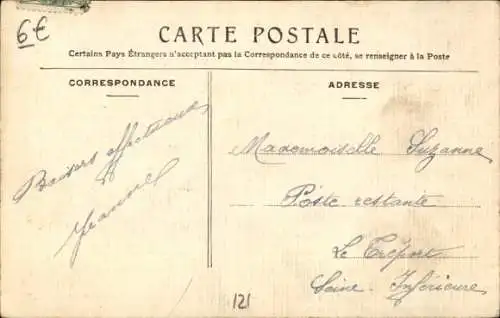 6€
CARTE POSTALE
Certains Pays Étrangers n'acceptant pas la Correspondance de ce côté, se renseigner à la Poste
CORRESPONDANCE
Baisers affectueux
Jeanne
ADRESSE
Mademoiselle Suzanne
Poste restante
Le Tréport
Seine Inférieure
121